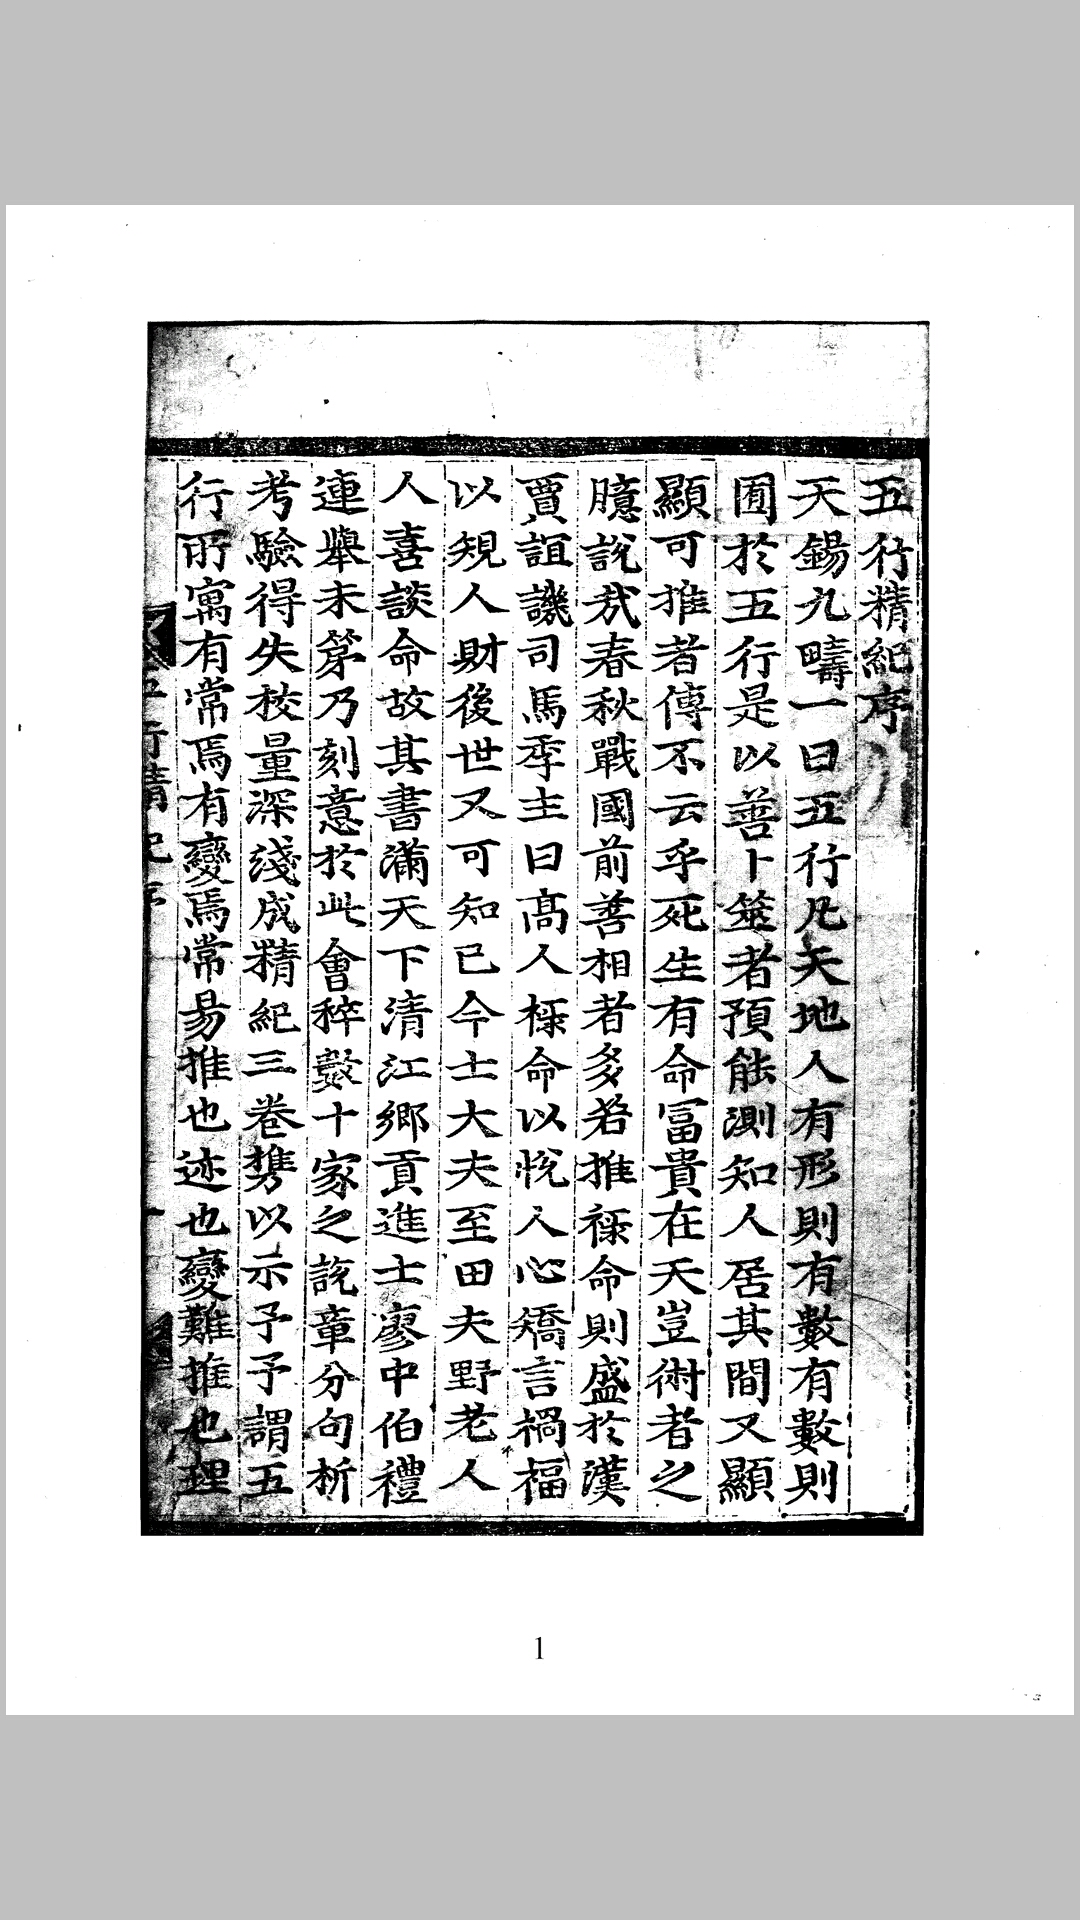 五行精紀序
天錫九疇一曰五行凡天地人有形則有數有數則
囿於五行是以善卜筮者預能測知人居其間又顯
顯可推者傳不云乎死生有命冨貴在天豈術者之
臆說㦲春秋戰國前善相者多若推祿命則盛於漢
賈誼譏司馬季主曰髙人祿命以恱人心矯言禍福
以䂓人財後世又可知已今士大夫至田夫野老人
人喜談命故其書滿天下清江鄉貢進士廖中伯禮
連舉未第乃刻意於此會稡數十家之說章分句析
考驗得失校量深淺成精紀三卷携以示予予謂五
行所寓有常焉有變焉常易推也迹也變難推也理
五行精紀序
一
1